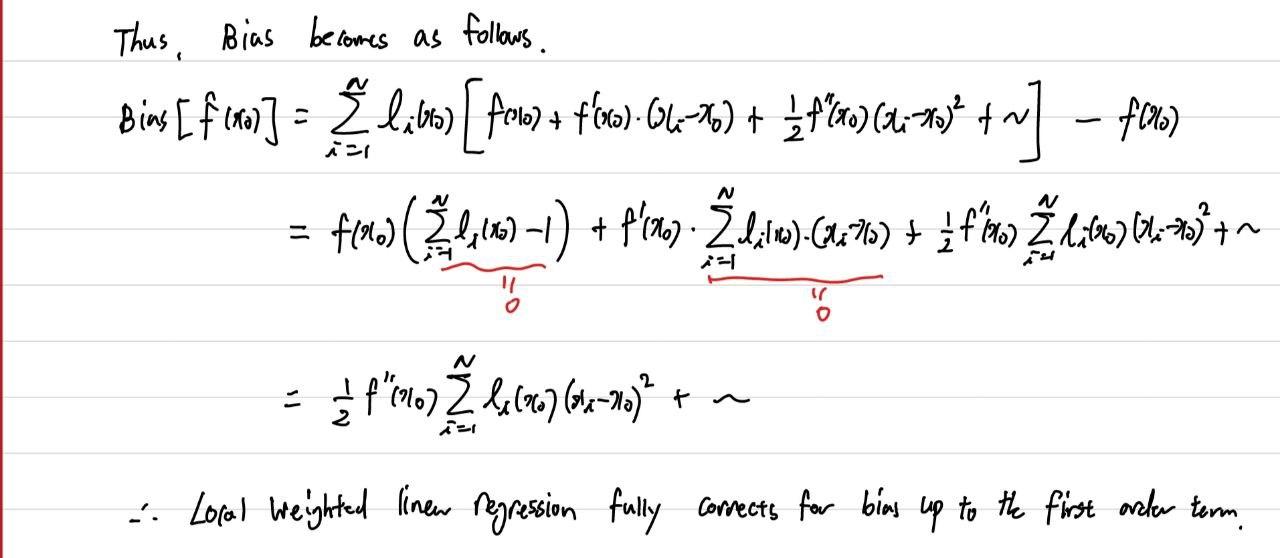 Thus, Bias becomes as follows.
Bias[f̂(x₀)] = Σᵢ₌₁ᴺ lᵢ(x₀) [f(x₀) + f'(x₀)·(xᵢ-x₀) + ½f''(x₀)(xᵢ-x₀)² + ~] - f(x₀)
= f(x₀)(Σᵢ₌₁ᴺ lᵢ(x₀) - 1) + f'(x₀)·Σᵢ₌₁ᴺ lᵢ(x₀)·(xᵢ-x₀) + ½f''(x₀) Σᵢ₌₁ᴺ lᵢ(x₀)(xᵢ-x₀)² + ~
= 0 = 0
= ½ f''(x₀) Σᵢ₌₁ᴺ lᵢ(x₀)(xᵢ-x₀)² + ~
∴ Local weighted linear regression fully corrects for bias up to the first order term.